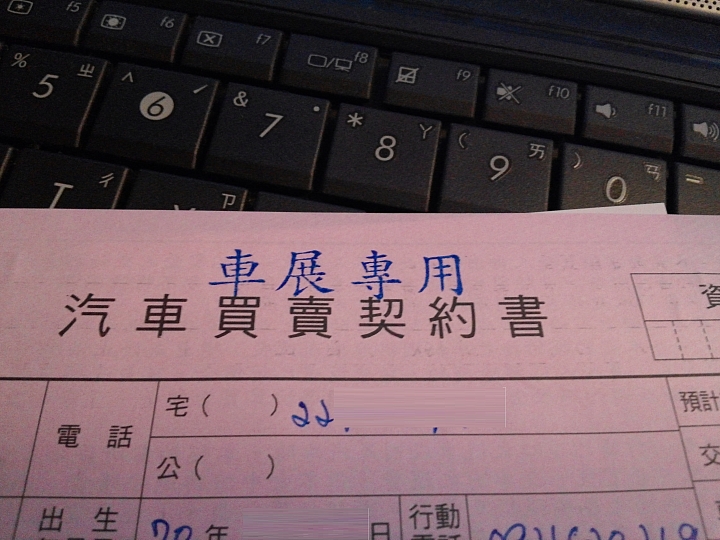 f5 f6 f7 f8 f9 f10 f11
% 5 ㄓ ^ 6 ˊ & 7 ˙ * 8 ㄚ ( 9 ㄞ ) 0 ㄢ
T ㄔ Y ㄗ
車展專用
汽車買賣契約書
資
電話 宅( ) 22 預計
公( ) 交
出生 70年 日 行動